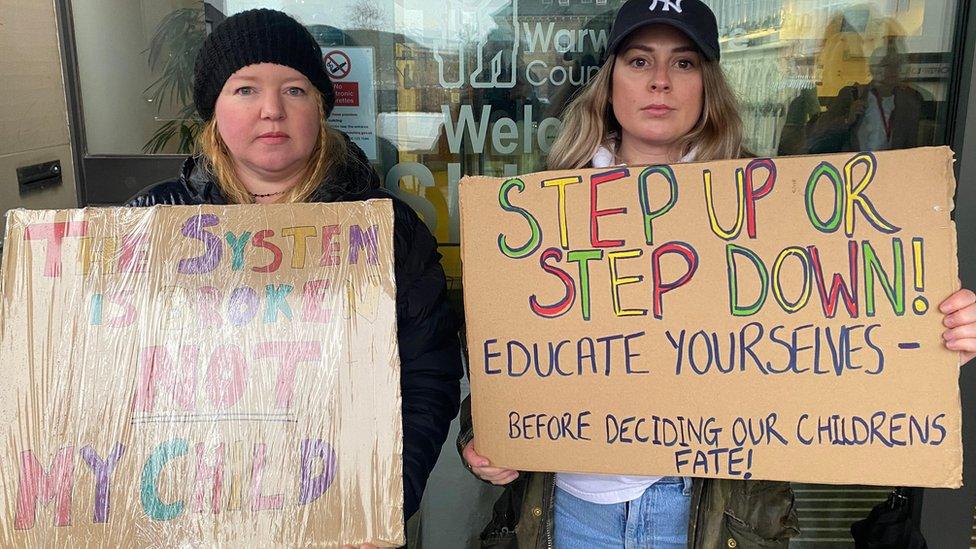 THE SYSTEM
IS BROKEN
NOT
MY CHILD
STEP UP OR
STEP DOWN!
EDUCATE YOURSELVES -
BEFORE DECIDING OUR CHILDRENS
FATE!
NY
Warw
Coun
Welc